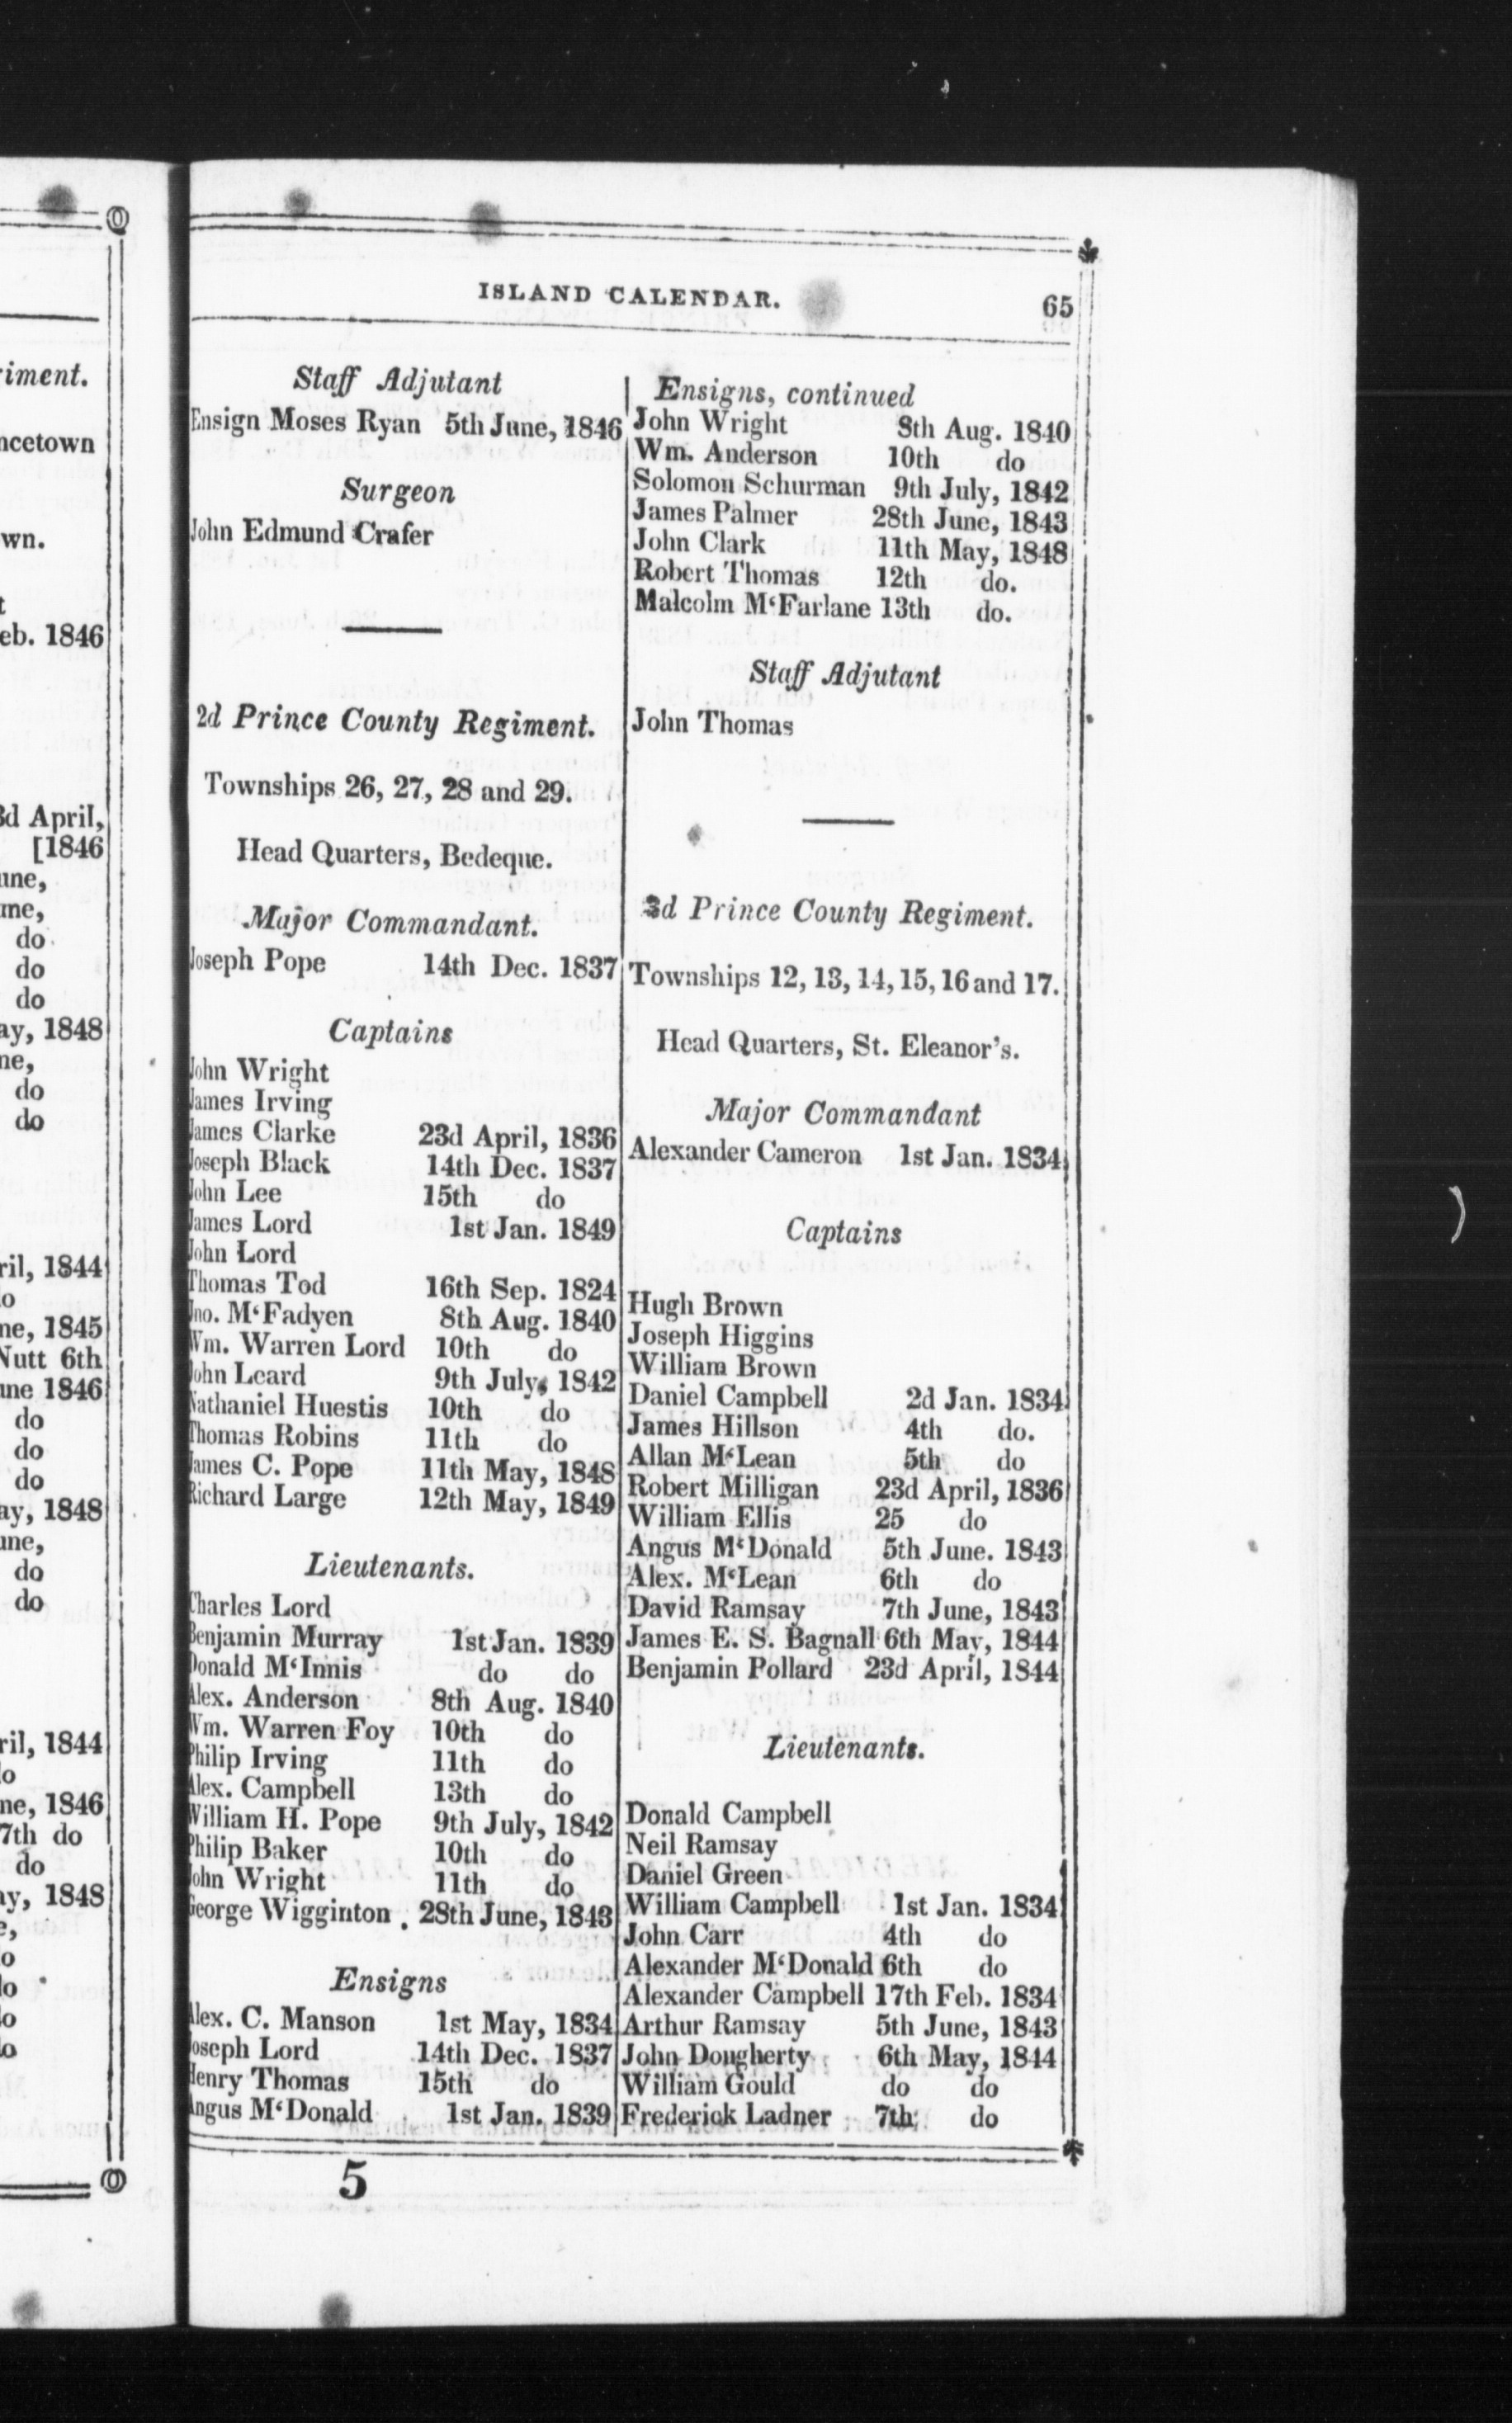 iment.
ncetown
wn.
eb. 1846
3d April,
[1846
une,
me,
do
do
do
ay, 1848
ne,
do
do
ril, 1844
o
ne, 1845
Nutt 6th
une 1846
do
do
do
ay, 1848
une,
do
do
ril, 1844
o
ne, 1846
7th do
do
ay, 1848
e,
o
lo
lo
lo
ISLAND CALENDAR.
65
Staff Adjutant
Ensign Moses Ryan 5th June, 1846
Surgeon
John Edmund Crafer
2d Prince County Regiment.
Townships 26, 27, 28 and 29.
Head Quarters, Bedeque.
Major Commandant.
Joseph Pope 14th Dec. 1837
Captains
John Wright
James Irving
James Clarke 23d April, 1836
Joseph Black 14th Dec. 1837
John Lee 15th do
James Lord 1st Jan. 1849
John Lord
Thomas Tod 16th Sep. 1824
Jno. M‘Fadyen 8th Aug. 1840
Wm. Warren Lord 10th do
John Leard 9th July, 1842
Nathaniel Huestis 10th do
Thomas Robins 11th do
James C. Pope 11th May, 1848
Richard Large 12th May, 1849
Lieutenants.
Charles Lord
Benjamin Murray 1st Jan. 1839
Donald M‘Innis do do
Alex. Anderson 8th Aug. 1840
Wm. Warren Foy 10th do
Philip Irving 11th do
Alex. Campbell 13th do
William H. Pope 9th July, 1842
Philip Baker 10th do
John Wright 11th do
George Wigginton . 28th June, 1843
Ensigns
Alex. C. Manson 1st May, 1834
Joseph Lord 14th Dec. 1837
Henry Thomas 15th do
Angus M‘Donald 1st Jan. 1839
Ensigns, continued
John Wright 8th Aug. 1840
Wm. Anderson 10th do
Solomon Schurman 9th July, 1842
James Palmer 28th June, 1843
John Clark 11th May, 1848
Robert Thomas 12th do.
Malcolm M‘Farlane 13th do.
Staff Adjutant
John Thomas
3d Prince County Regiment.
Townships 12, 13, 14, 15, 16 and 17.
Head Quarters, St. Eleanor's.
Major Commandant
Alexander Cameron 1st Jan. 1834
Captains
Hugh Brown
Joseph Higgins
William Brown
Daniel Campbell 2d Jan. 1834
James Hillson 4th do.
Allan M‘Lean 5th do
Robert Milligan 23d April, 1836
William Ellis 25 do
Angus M‘Donald 5th June. 1843
Alex. M‘Lean 6th do
David Ramsay 7th June, 1843
James E. S. Bagnall 6th May, 1844
Benjamin Pollard 23d April, 1844
Lieutenants.
Donald Campbell
Neil Ramsay
Daniel Green
William Campbell 1st Jan. 1834
John Carr 4th do
Alexander M‘Donald 6th do
Alexander Campbell 17th Feb. 1834
Arthur Ramsay 5th June, 1843
John Dougherty 6th May, 1844
William Gould do do
Frederick Ladner 7th do
5